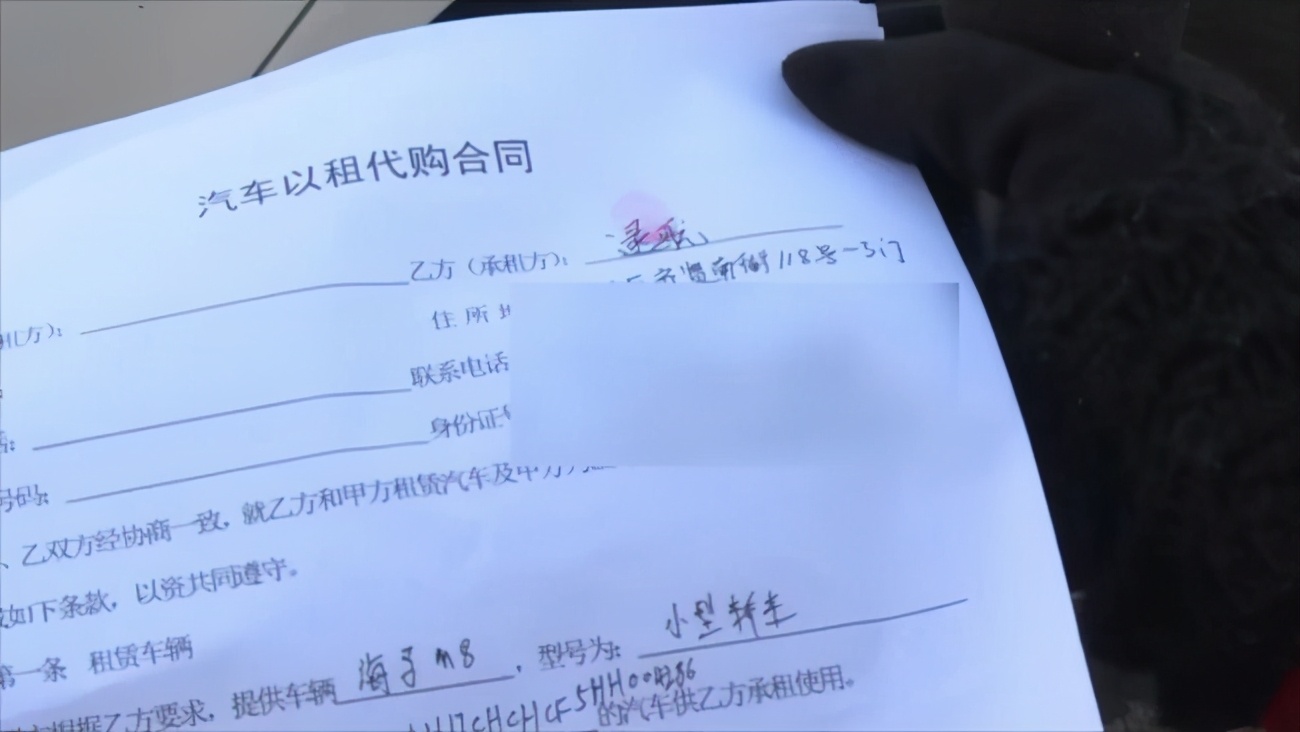 汽车以租代购合同
租方): 乙方(承租方):
市贤南街118号一3门
住所地
联系电话
身份证号
号码:
、乙双方经协商一致,就乙方和甲方租赁汽车及甲方
如下条款,以资共同遵守。
第一条 租赁车辆
根据乙方要求,提供车辆 海子m8 ,型号为: 小型轿车
CHCHCF5HH00 的汽车供乙方承租使用。